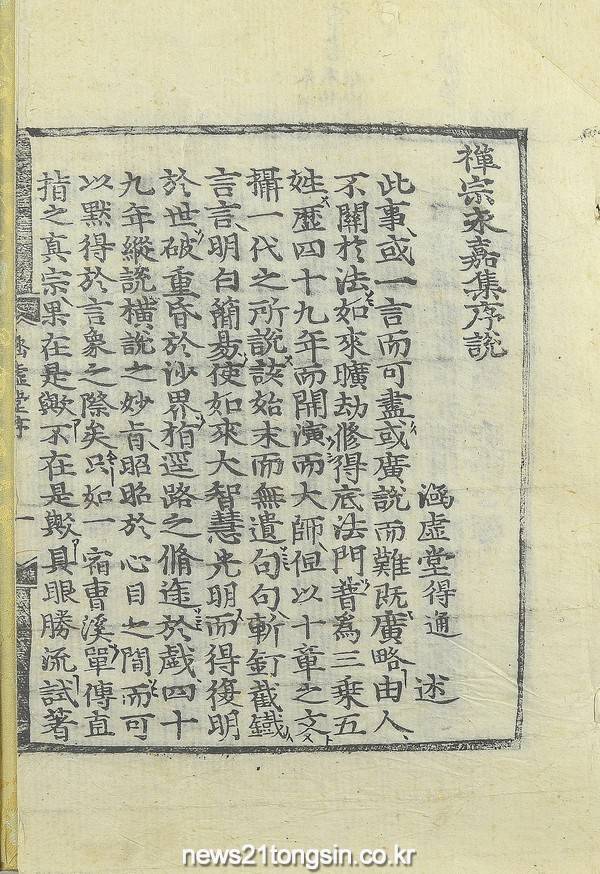 禪宗永嘉集序說
涵虛堂得通 述
此事或一言而可盡或廣說而難既廣略由人
不關於法如來曠劫修得底法門普為三乘五
姓歷四十九年而開演而大師但以十章之文
攝一代之所說該始末而無遺句句斬釘截鐵
言言明白簡易使如來大智慧光明而得復明
於世破重昏於沙界指逕路之脩途於戱四十
九年縱說橫說之妙旨昭昭於心目之間而可
以默得於言象之際矣只如一宿曹溪單傳直
指之真宗果在是歟不在是歟具眼勝流試著
涵虛堂序 一
news21tongsin.co.kr